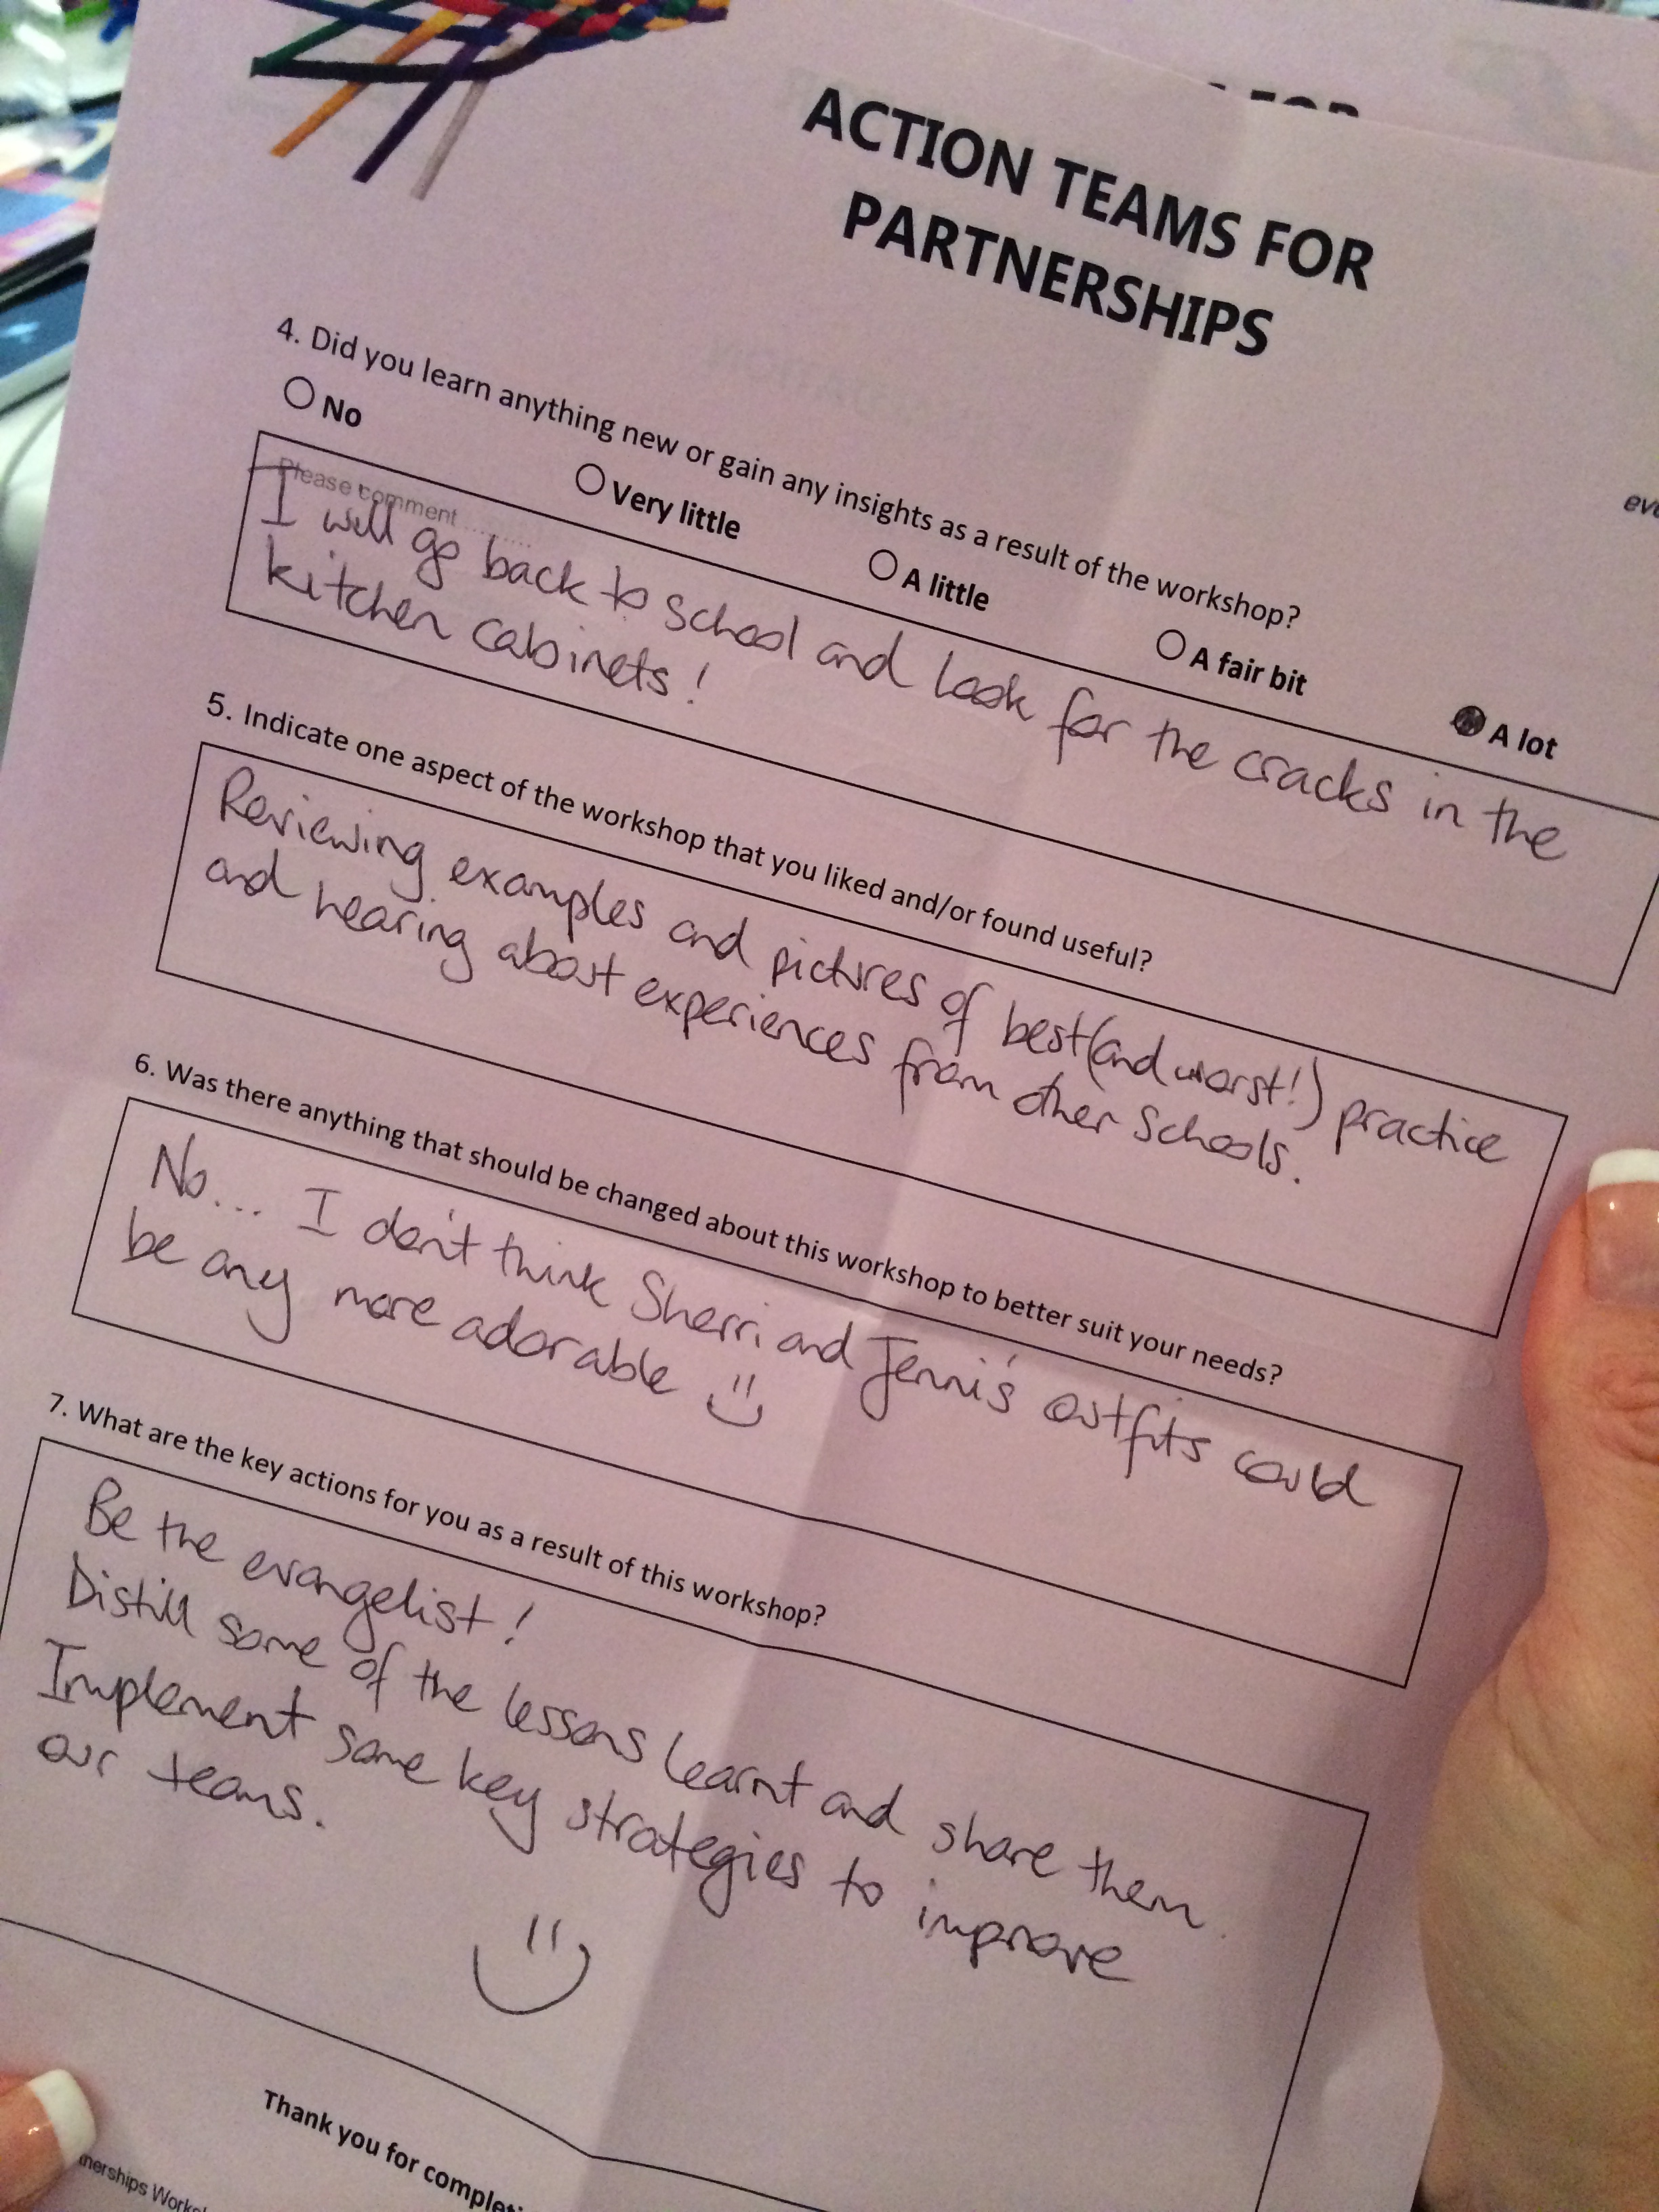 ACTION TEAMS FOR
PARTNERSHIPS
4. Did you learn anything new or gain any insights as a result of the workshop?
No
Very little
A little
A fair bit
A lot
Please comment ..........
I will go back to school and look for the cracks in the
kitchen cabinets!
5. Indicate one aspect of the workshop that you liked and/or found useful?
Reviewing examples and pictures of best (and worst!) practice
and hearing about experiences from other schools.
6. Was there anything that should be changed about this workshop to better suit your needs?
No... I don't think Sherri and Jenni's outfits could
be any more adorable
7. What are the key actions for you as a result of this workshop?
Be the evangelist!
Distill some of the lessons learnt and share them.
Implement some key strategies to improve
our teams.
Thank you for